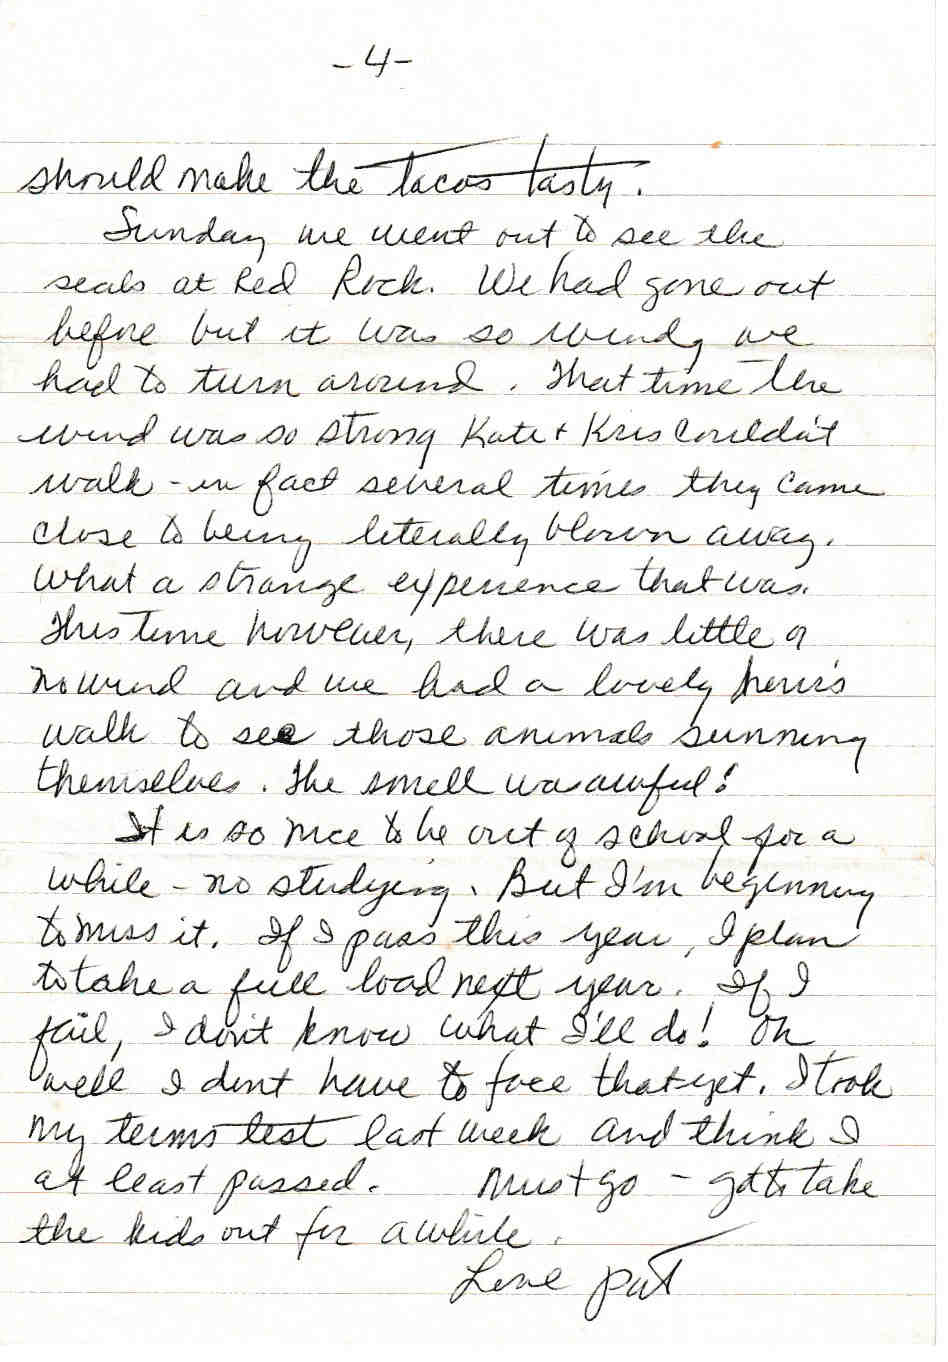 -4-
should make the tacos tasty.
Sunday we went out to see the
seals at Red Rock. We had gone out
before but it was so windy we
had to turn around. That time the
wind was so strong Kate + Kris couldn't
walk - in fact several times they came
close to being literally blown away.
What a strange experience that was.
This time however, there was little or
no wind and we had a lovely
walk to see those animals sunning
themselves. The smell was awful!
It is so nice to be out of school for a
while - no studying. But I'm beginning
to miss it. If I pass this year, I plan
to take a full load next year. If I
fail, I don't know what I'll do! Oh
well I dont have to face that yet. I took
my terms test last week and think I
at least passed. Must go - gotta take
the kids out for awhile.
Love Pat